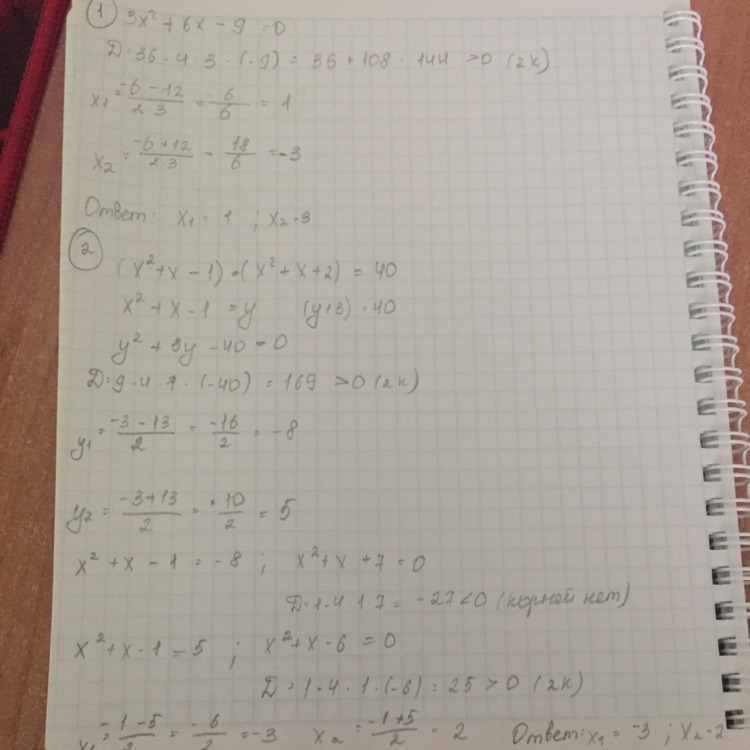 1 3x² + 6x - 9 = 0
D = 36 - 4 · 3 · (-9) = 36 + 108 = 144 > 0 (2к)
x₁ = (-6 - 12)/(2·3) = -6/6 = 1
x₂ = (-6 + 12)/(2·3) = 18/6 = -3
Ответ: x₁ = 1 ; x₂ = 3
2
(x² + x - 1) · (x² + x + 2) = 40
x² + x - 1 = y (y + 3) · 40
y² + 3y - 40 = 0
D = 9 - 4 · 1 · (-40) = 169 > 0 (2к)
y₁ = (-3 - 13)/2 = -16/2 = -8
y₂ = (-3 + 13)/2 = 10/2 = 5
x² + x - 1 = -8 ; x² + x + 7 = 0
D = 1 - 4 · 1 · 7 = -27 < 0 (корней нет)
x² + x - 1 = 5 ; x² + x - 6 = 0
D = 1 - 4 · 1 · (-6) = 25 > 0 (2к)
x₁ = (-1 - 5)/2 = -6/2 = -3 x₂ = (-1 + 5)/2 = 2 Ответ: x₁ = -3 ; x₂ = 2